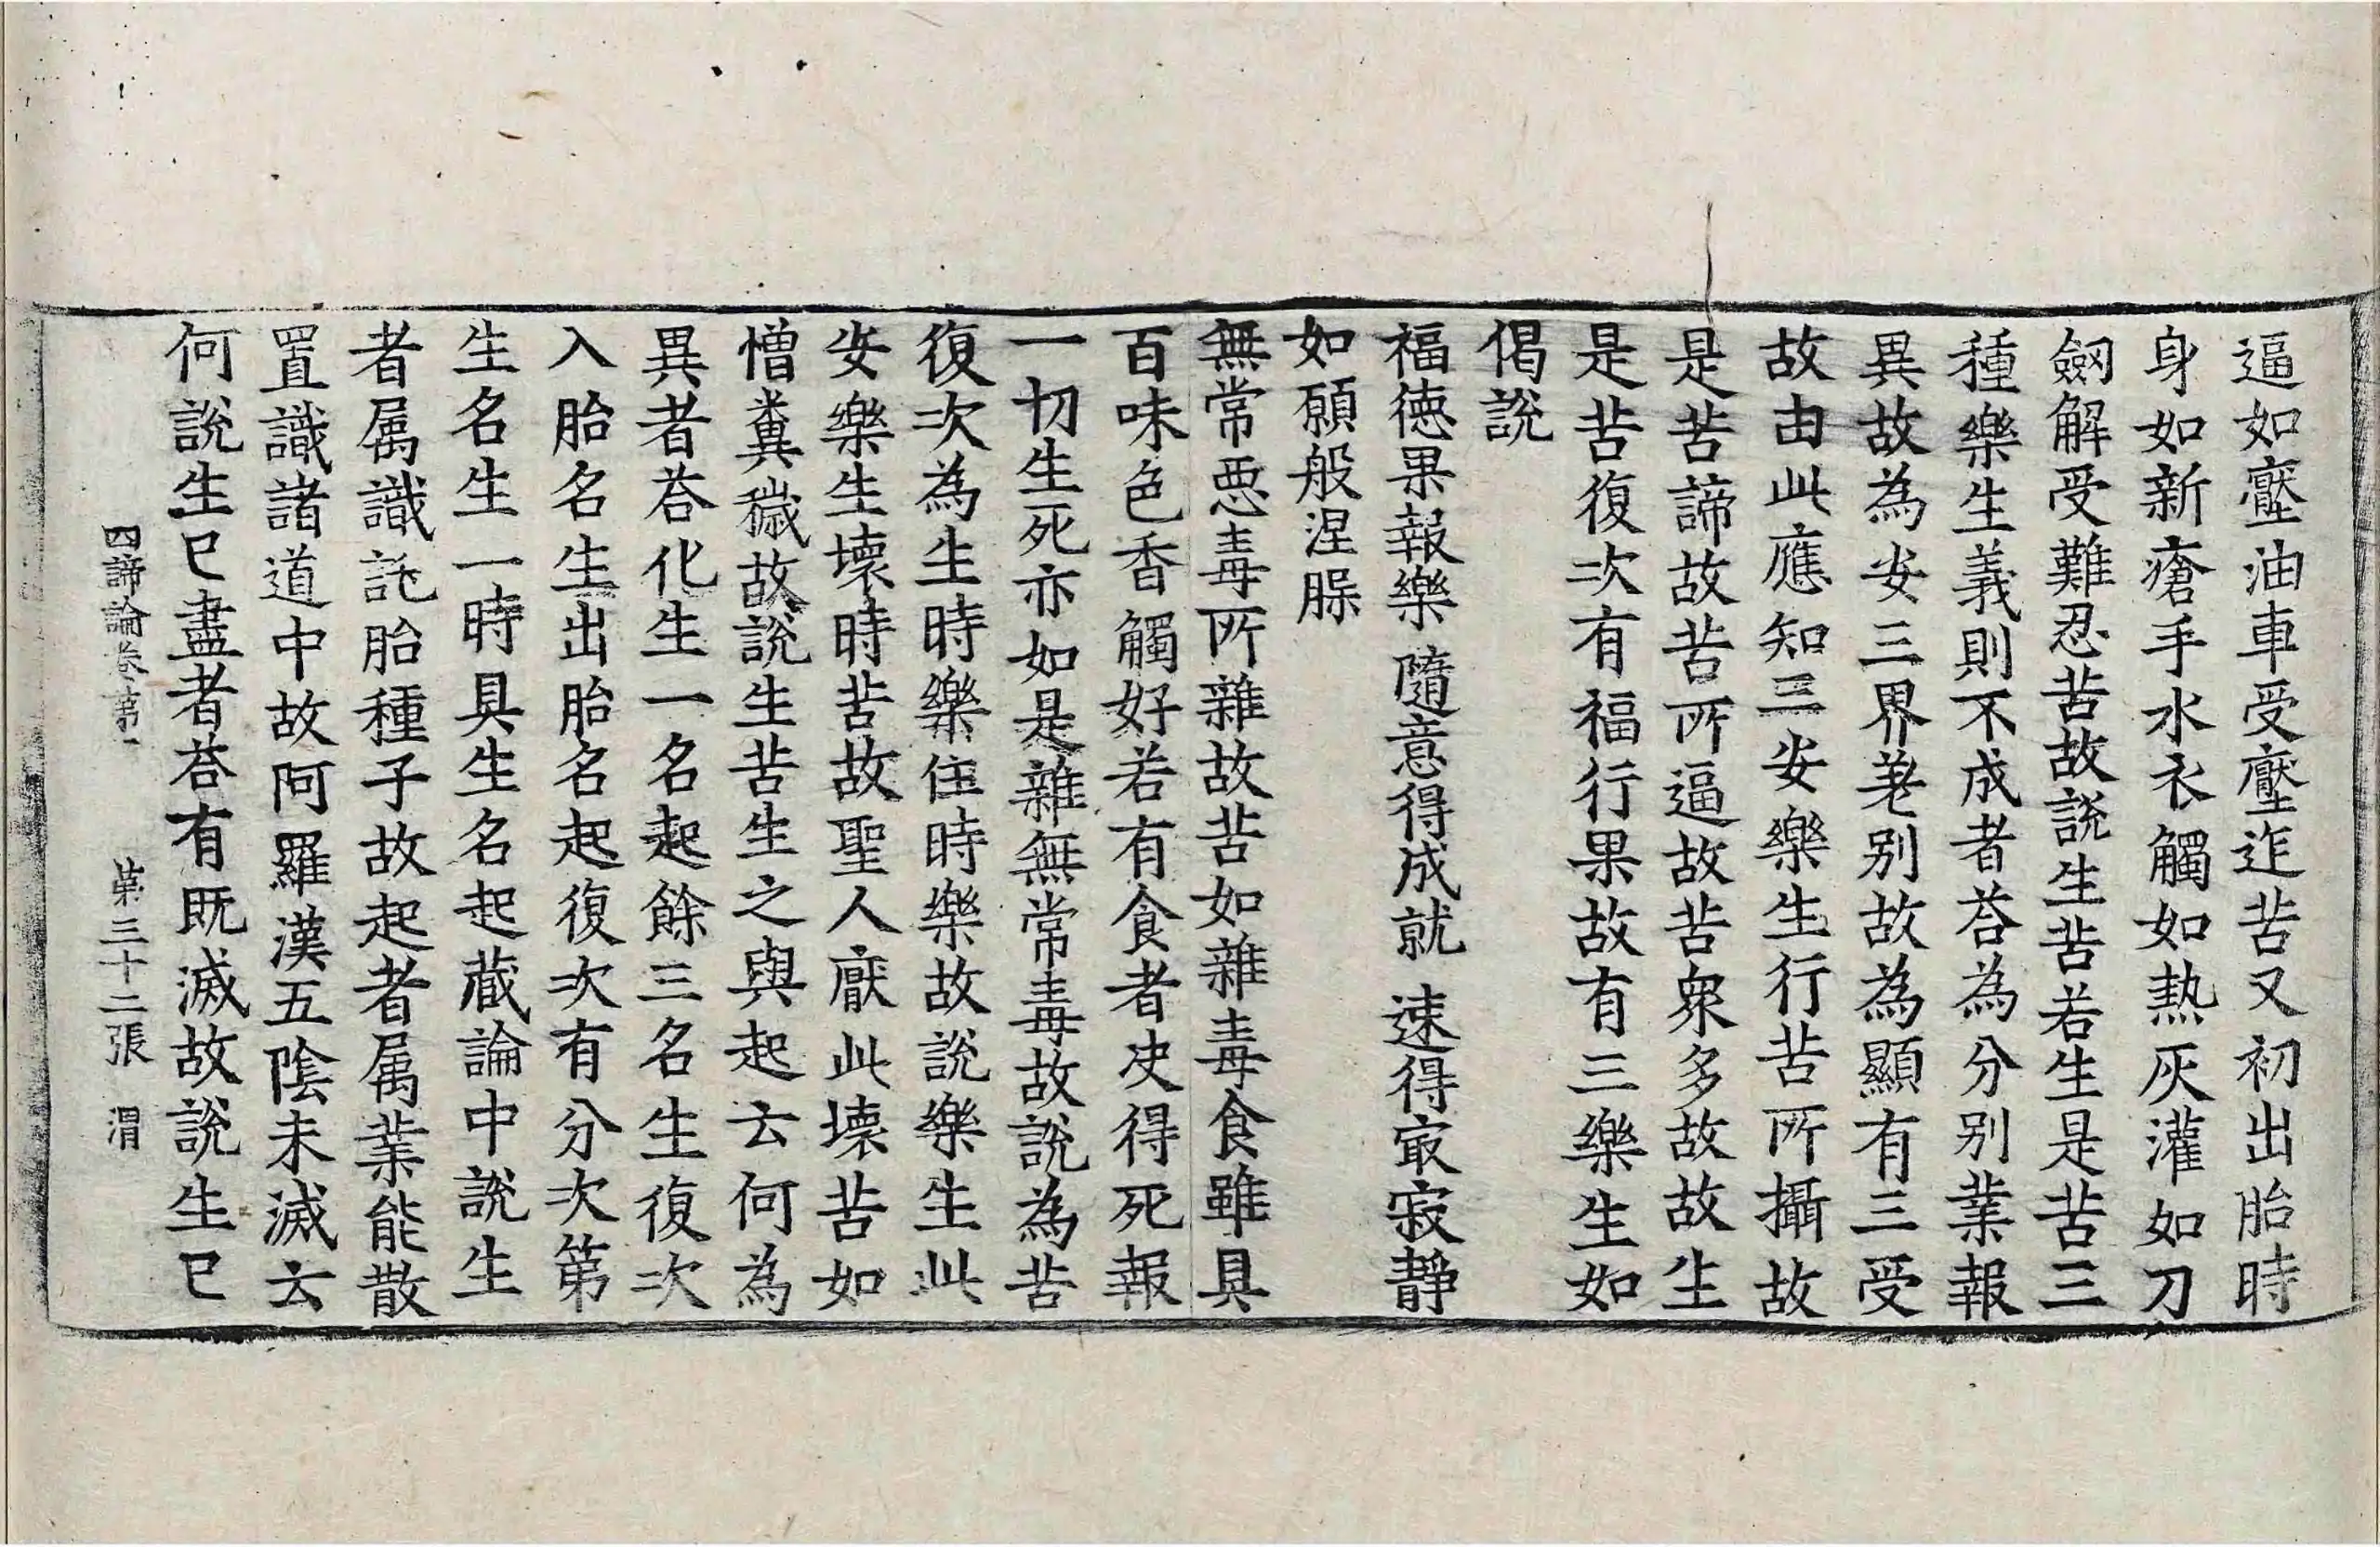 逼如壓油車受壓迮苦又初出胎時
身如新瘡手水衣觸如熱灰灌如刀
劒解受難忍苦故說生苦若生是苦三
種樂生義則不成者荅為分别業報
異故為安三界差别故為顯有三受
故由此應知三安樂生行苦所攝故
是苦諦故苦所逼故苦衆多故故生
是苦復次有福行果故有三樂生如
偈說
福德果報樂 隨意得成就 速得㝡寂靜
如願般涅脲
無常惡毒所雜故苦如雜毒食雖具
百味色香觸好若有食者決得死報
一切生死亦如是雜無常毒故說為苦
復次為生時樂住時樂故說樂生此
安樂生壞時苦故聖人厭此壞苦如
憎糞穢故說生苦生之與起云何為
異者荅化生一名起餘三名生復次
入胎名生出胎名起復次有分次第
生名生一時具生名起藏論中說生
者属識託胎種子故起者属業能散
置識諸道中故阿羅漢五陰未滅云
何說生已盡者荅有既滅故說生已
四諦論卷第一 第三十二張 渭